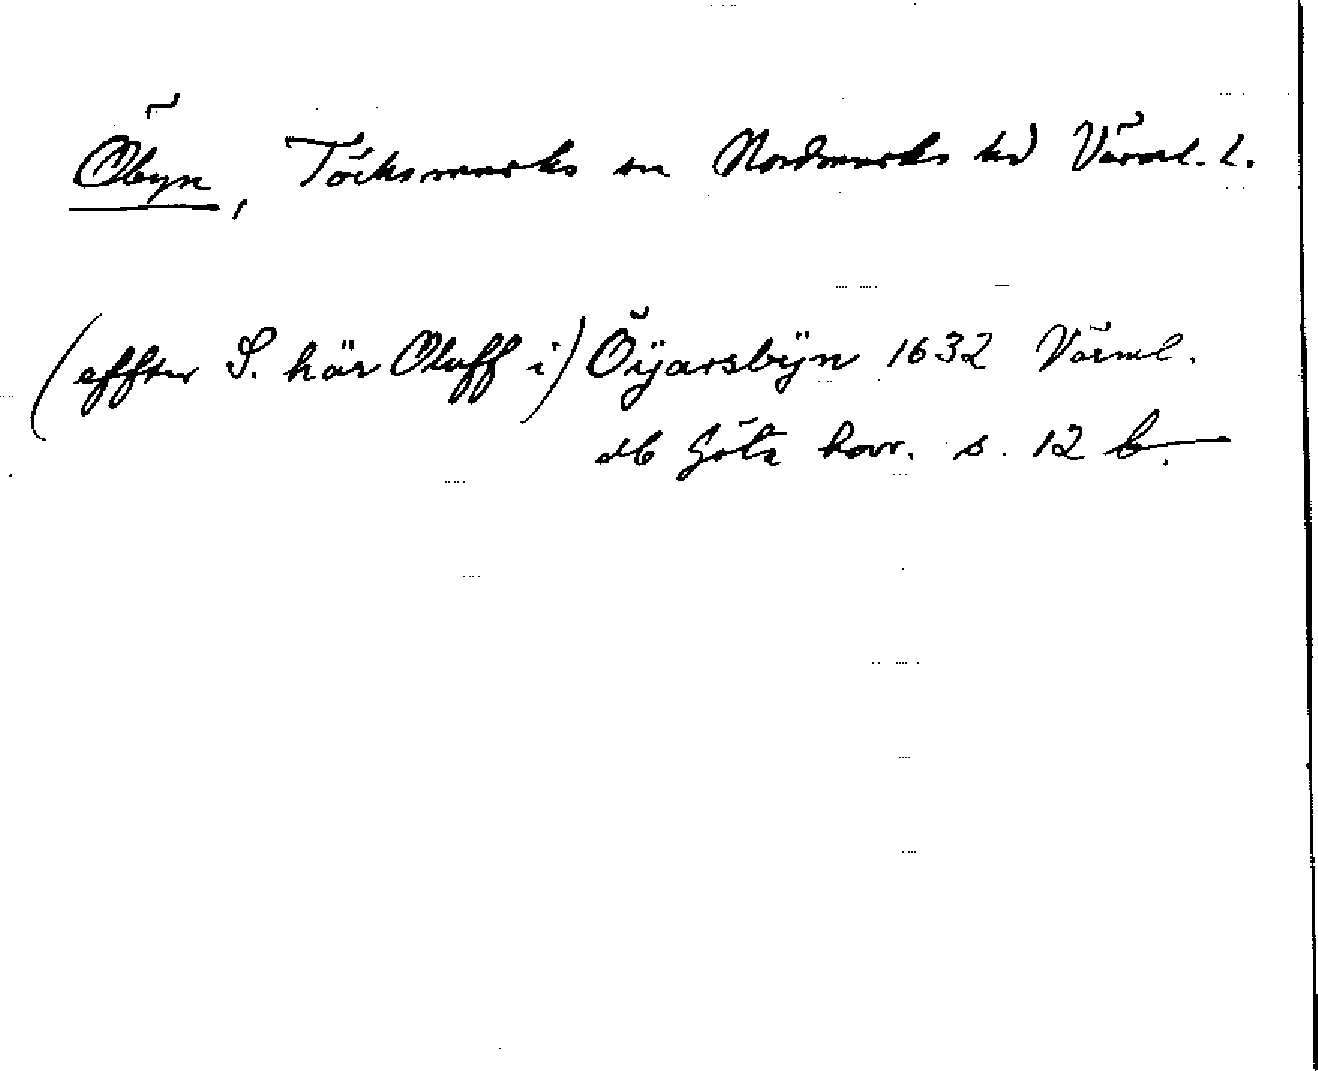 Öbyn, Töcksmarks sn Nordmarks hd Värml. l.
(effter S. här Oluff i) Öÿarsbÿn 1632 Värml.
db Göta hovr. s. 12 b.